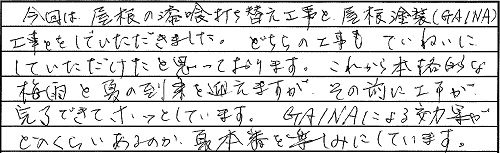 今回は、屋根の漆喰打ち替え工事と、屋根塗装(GAINA)
工事とをしていただきました。どちらの工事もていねいに
していただけたと思っております。これから本格的な
梅雨と夏の到来を迎えますが、その前に工事が
完了できてホッとしています。GAINAによる効果が
どのくらいあるのか、夏本番を楽しみにしています。